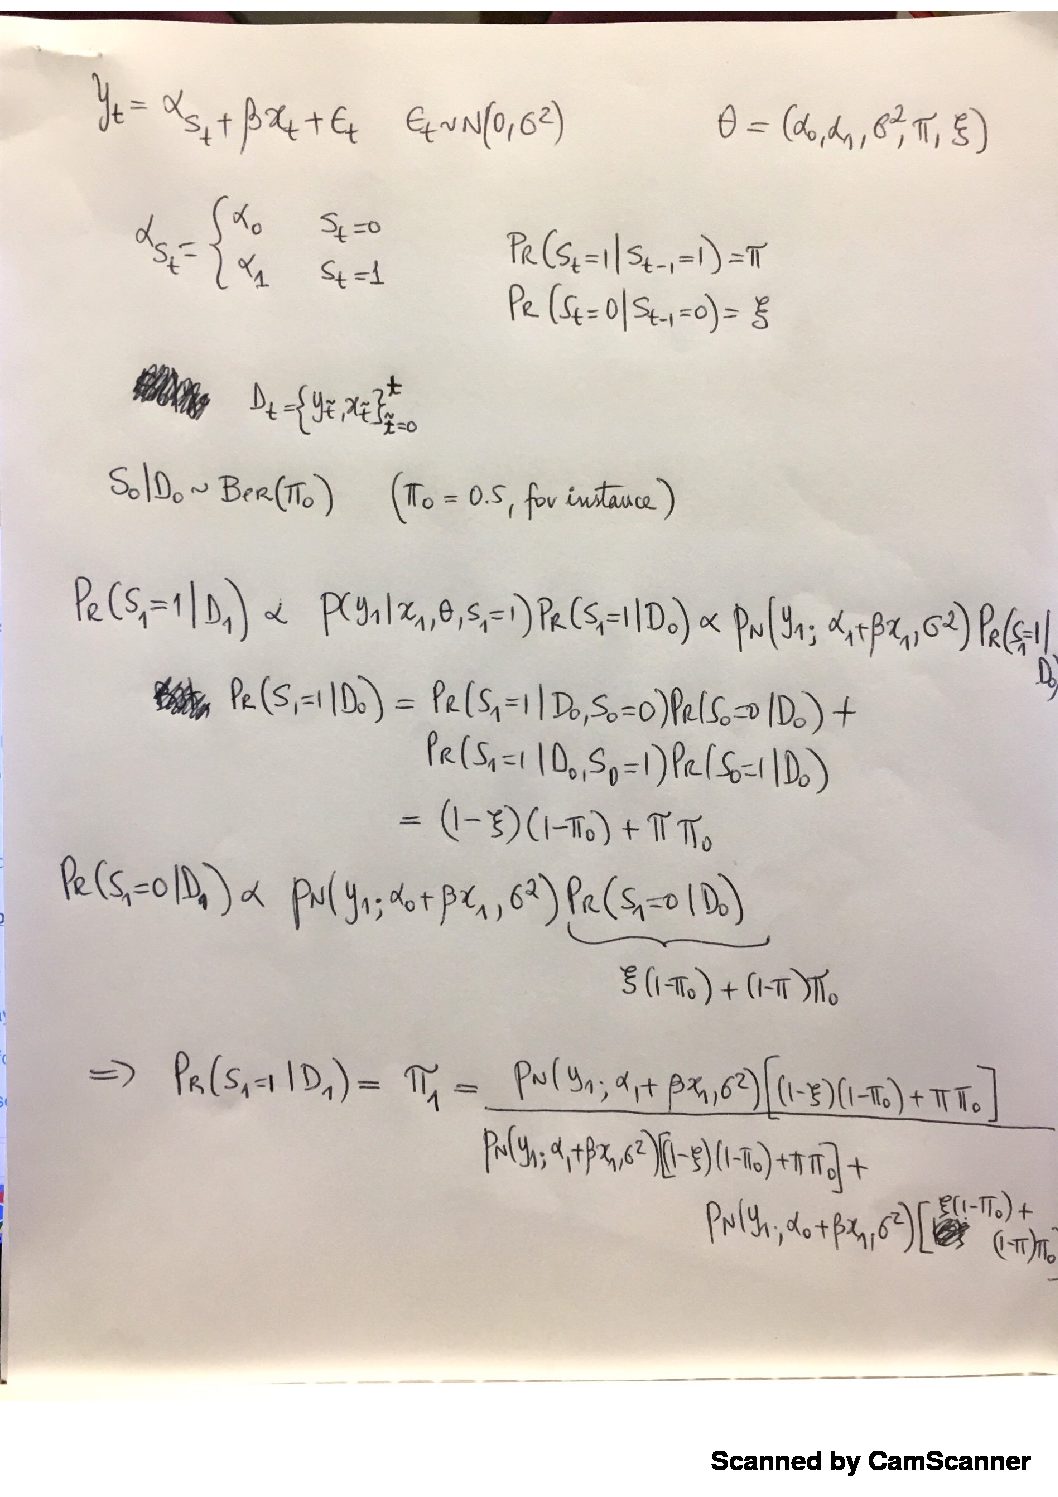 y_t = α_{S_t} + βx_t + ϵ_t   ϵ_t ~ N(0, σ²)   θ = (α_0, α_1, σ², π, ξ)
α_{S_t} = { α_0   S_t = 0
α_1   S_t = 1
PR(S_t = 1 | S_{t-1} = 1) = π
PR(S_t = 0 | S_{t-1} = 0) = ξ
D_t = {y_t̃, x_t̃}_{t̃=0}^t
S_0 | D_0 ~ BER(π_0)   (π_0 = 0.5, for instance)
PR(S_1 = 1 | D_1) ∝ p(y_1 | x_1, θ, s_1 = 1) PR(S_1 = 1 | D_0) ∝ p_N(y_1; α_1 + βx_1, σ²) PR(S_1 = 1 | D_0)
PR(S_1 = 1 | D_0) = PR(S_1 = 1 | D_0, S_0 = 0) PR(S_0 = 0 | D_0) +
PR(S_1 = 1 | D_0, S_0 = 1) PR(S_0 = 1 | D_0)
= (1 - ξ)(1 - π_0) + π π_0
PR(S_1 = 0 | D_1) ∝ p_N(y_1; α_0 + βx_1, σ²) PR(S_1 = 0 | D_0)
ξ(1 - π_0) + (1 - π)π_0
=> PR(S_1 = 1 | D_1) = π_1 = p_N(y_1; α_1 + βx_1, σ²)[(1 - ξ)(1 - π_0) + π π_0]
p_N(y_1; α_1 + βx_1, σ²)[(1 - ξ)(1 - π_0) + π π_0] +
p_N(y_1; α_0 + βx_1, σ²)[ξ(1 - π_0) +
(1 - π)π_0
Scanned by CamScanner